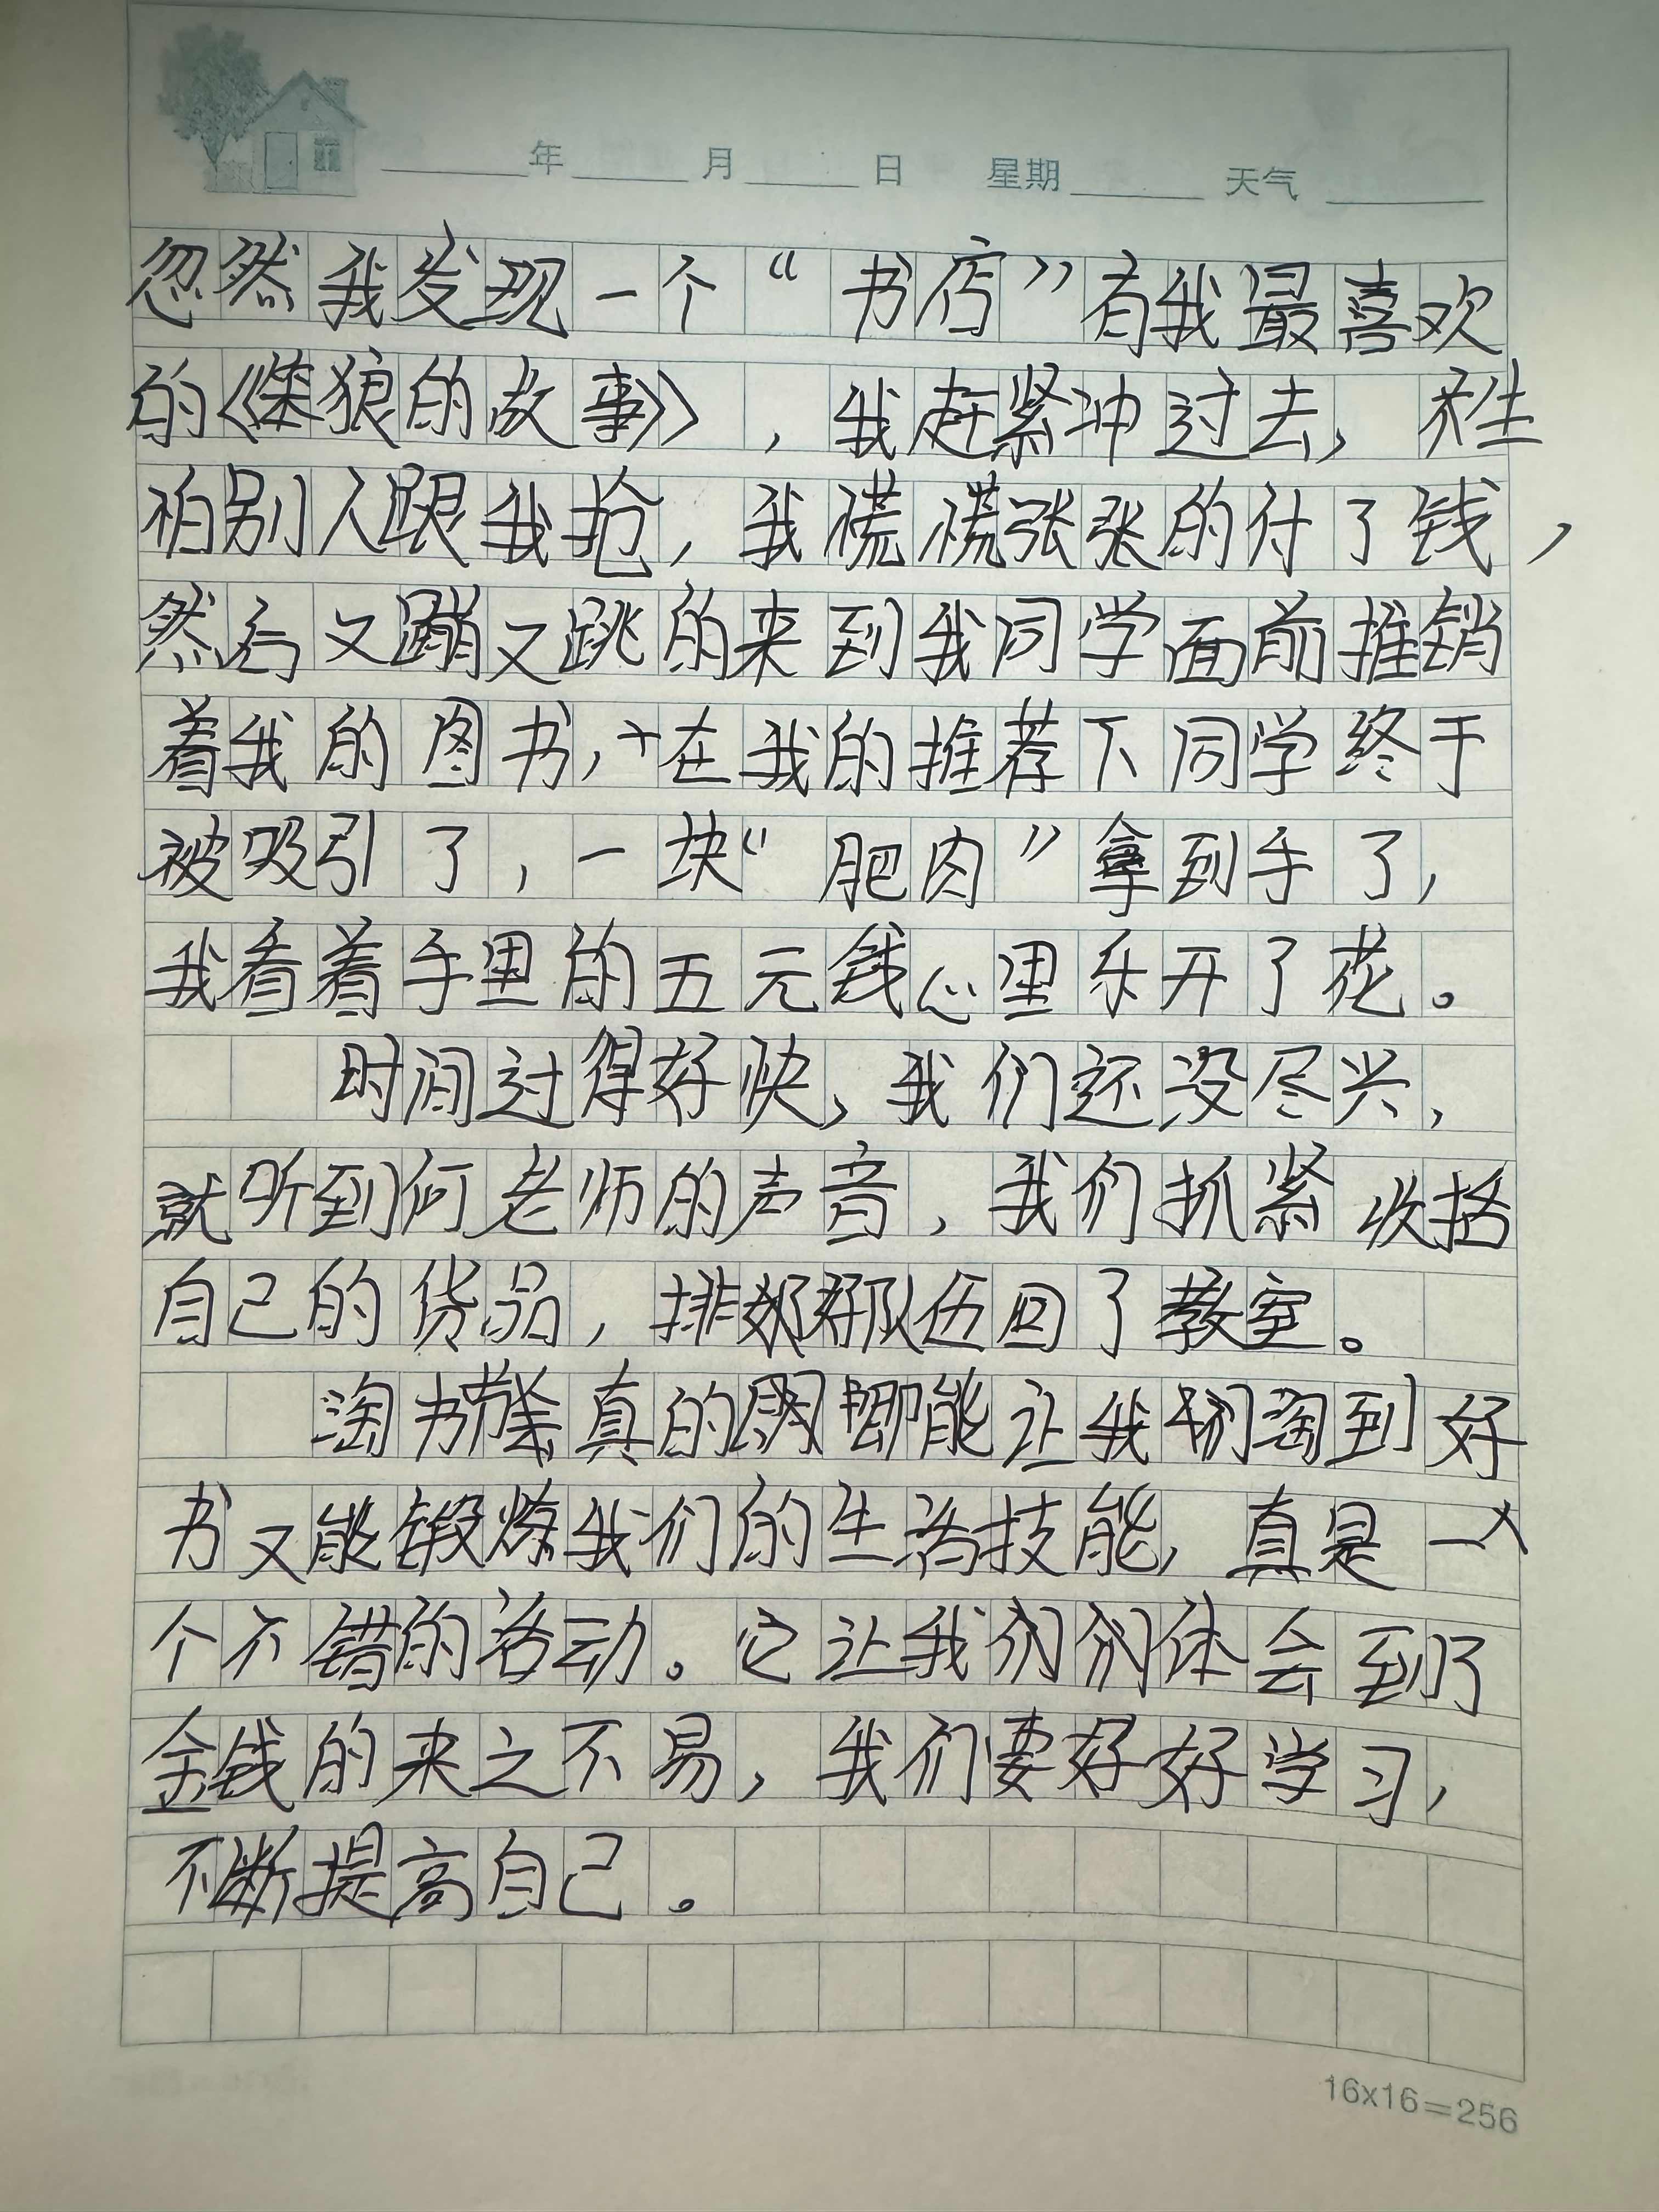 年 月 日 星期 天气
忽然我发现一个“书店”有我最喜欢
的《狼的故事》，我赶紧冲过去，生
怕别人跟我抢，我慌慌张张的付了钱，
然后又蹦又跳的来到我同学面前推销
着我的图书，在我的推荐下同学终于
被吸引了，一块“肥肉”拿到手了，
我看着手里的五元钱心里乐开了花。
时间过得好快，我们还没尽兴，
就听到何老师的声音，我们抓紧收括
自己的货品，排好队伍回了教室。
淘书真的能让我们淘到好
书又能锻炼我们的生活技能，真是一
个不错的活动。它让我们体会到了
金钱的来之不易，我们要好好学习，
不断提高自己。
16x16=256